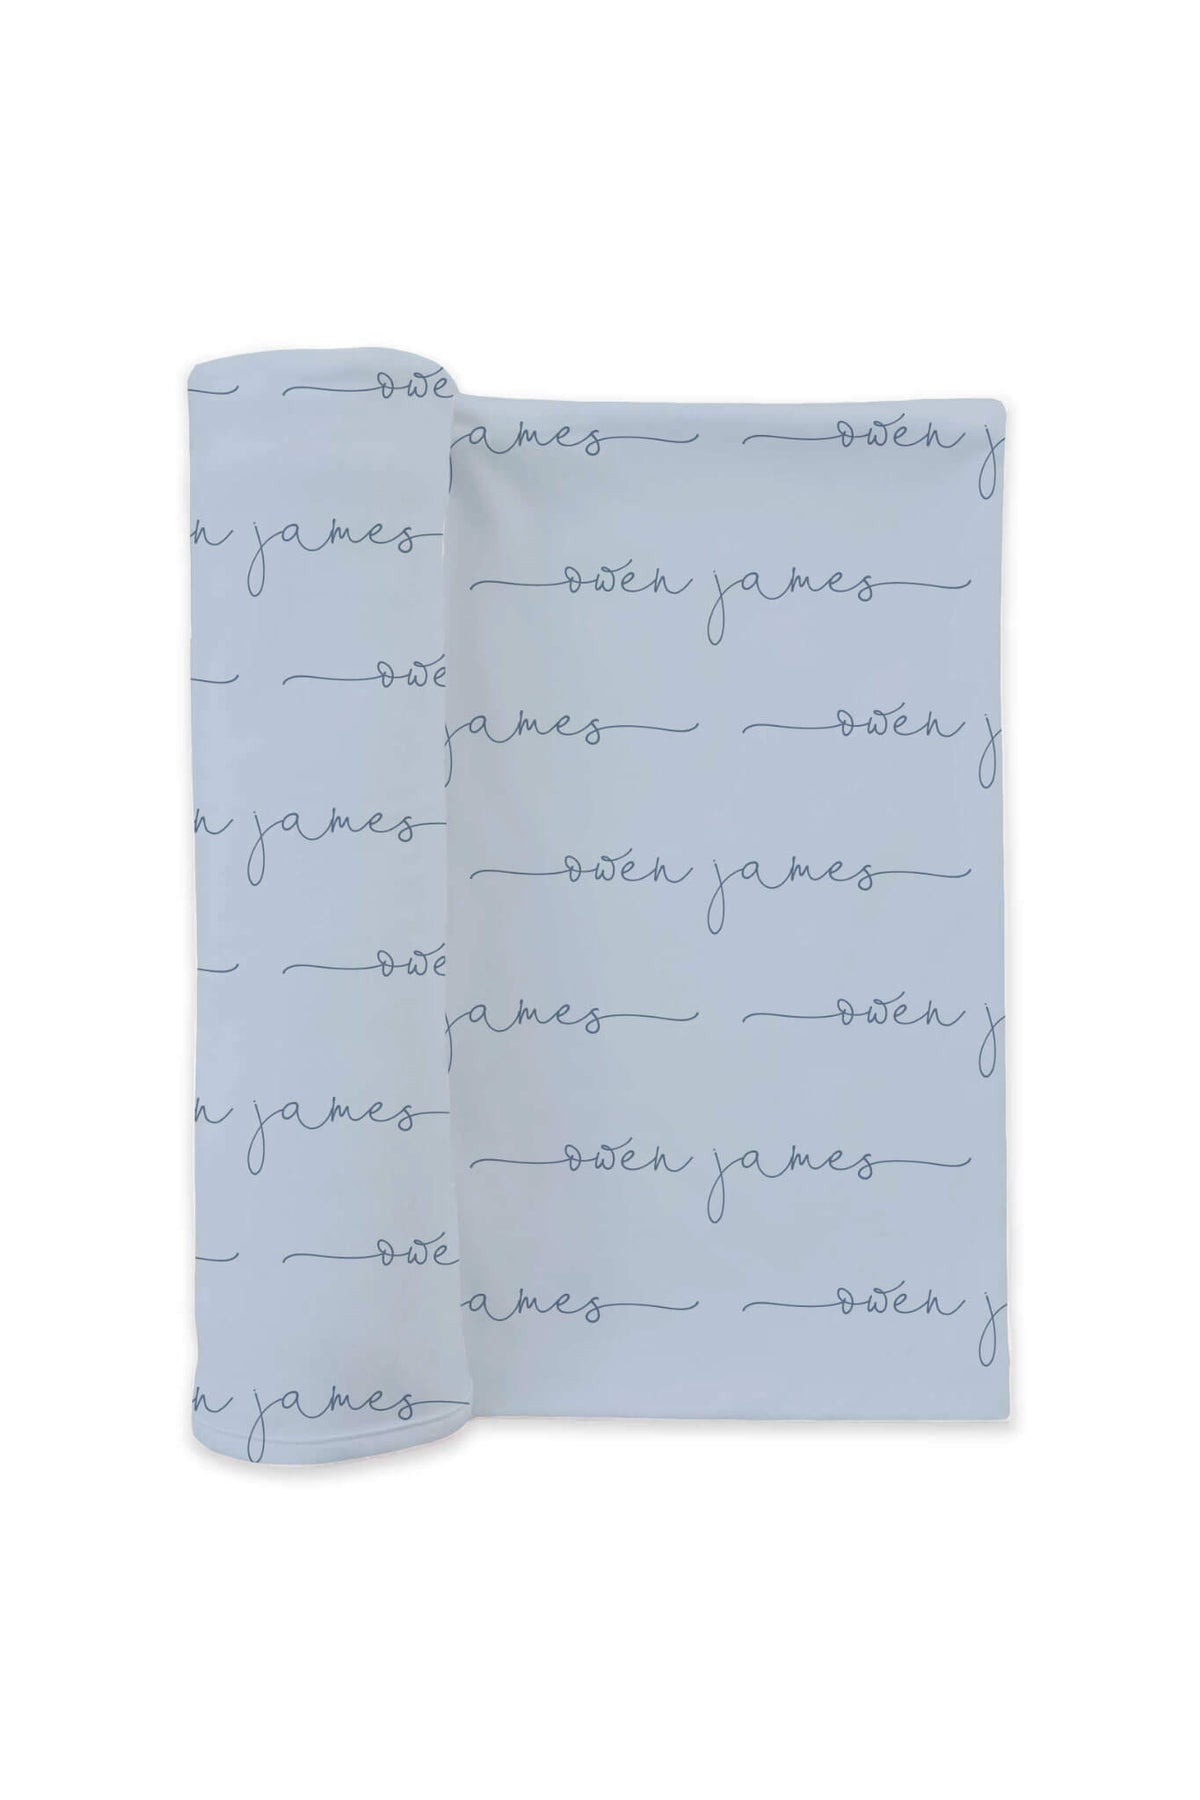 owe
james owen j
n james
owen james
owe
james owen j
n james
owen james
owe
james owen j
n james
owen james
owe
ames owen j
n james